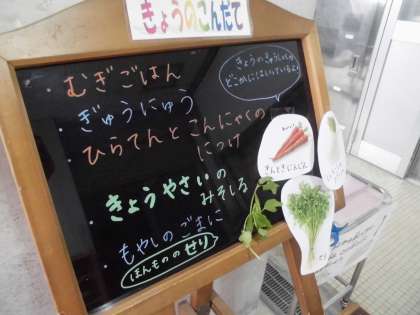 きょうのこんだて
・むぎごはん
・ぎゅうにゅう
・ひらてんとこんにゃくの
につけ
・きょうやさいの
みそしる
・もやしのごまに
ほんもののせり
きょうの
どこかにはいっているよ!
きんときにんじん
せり